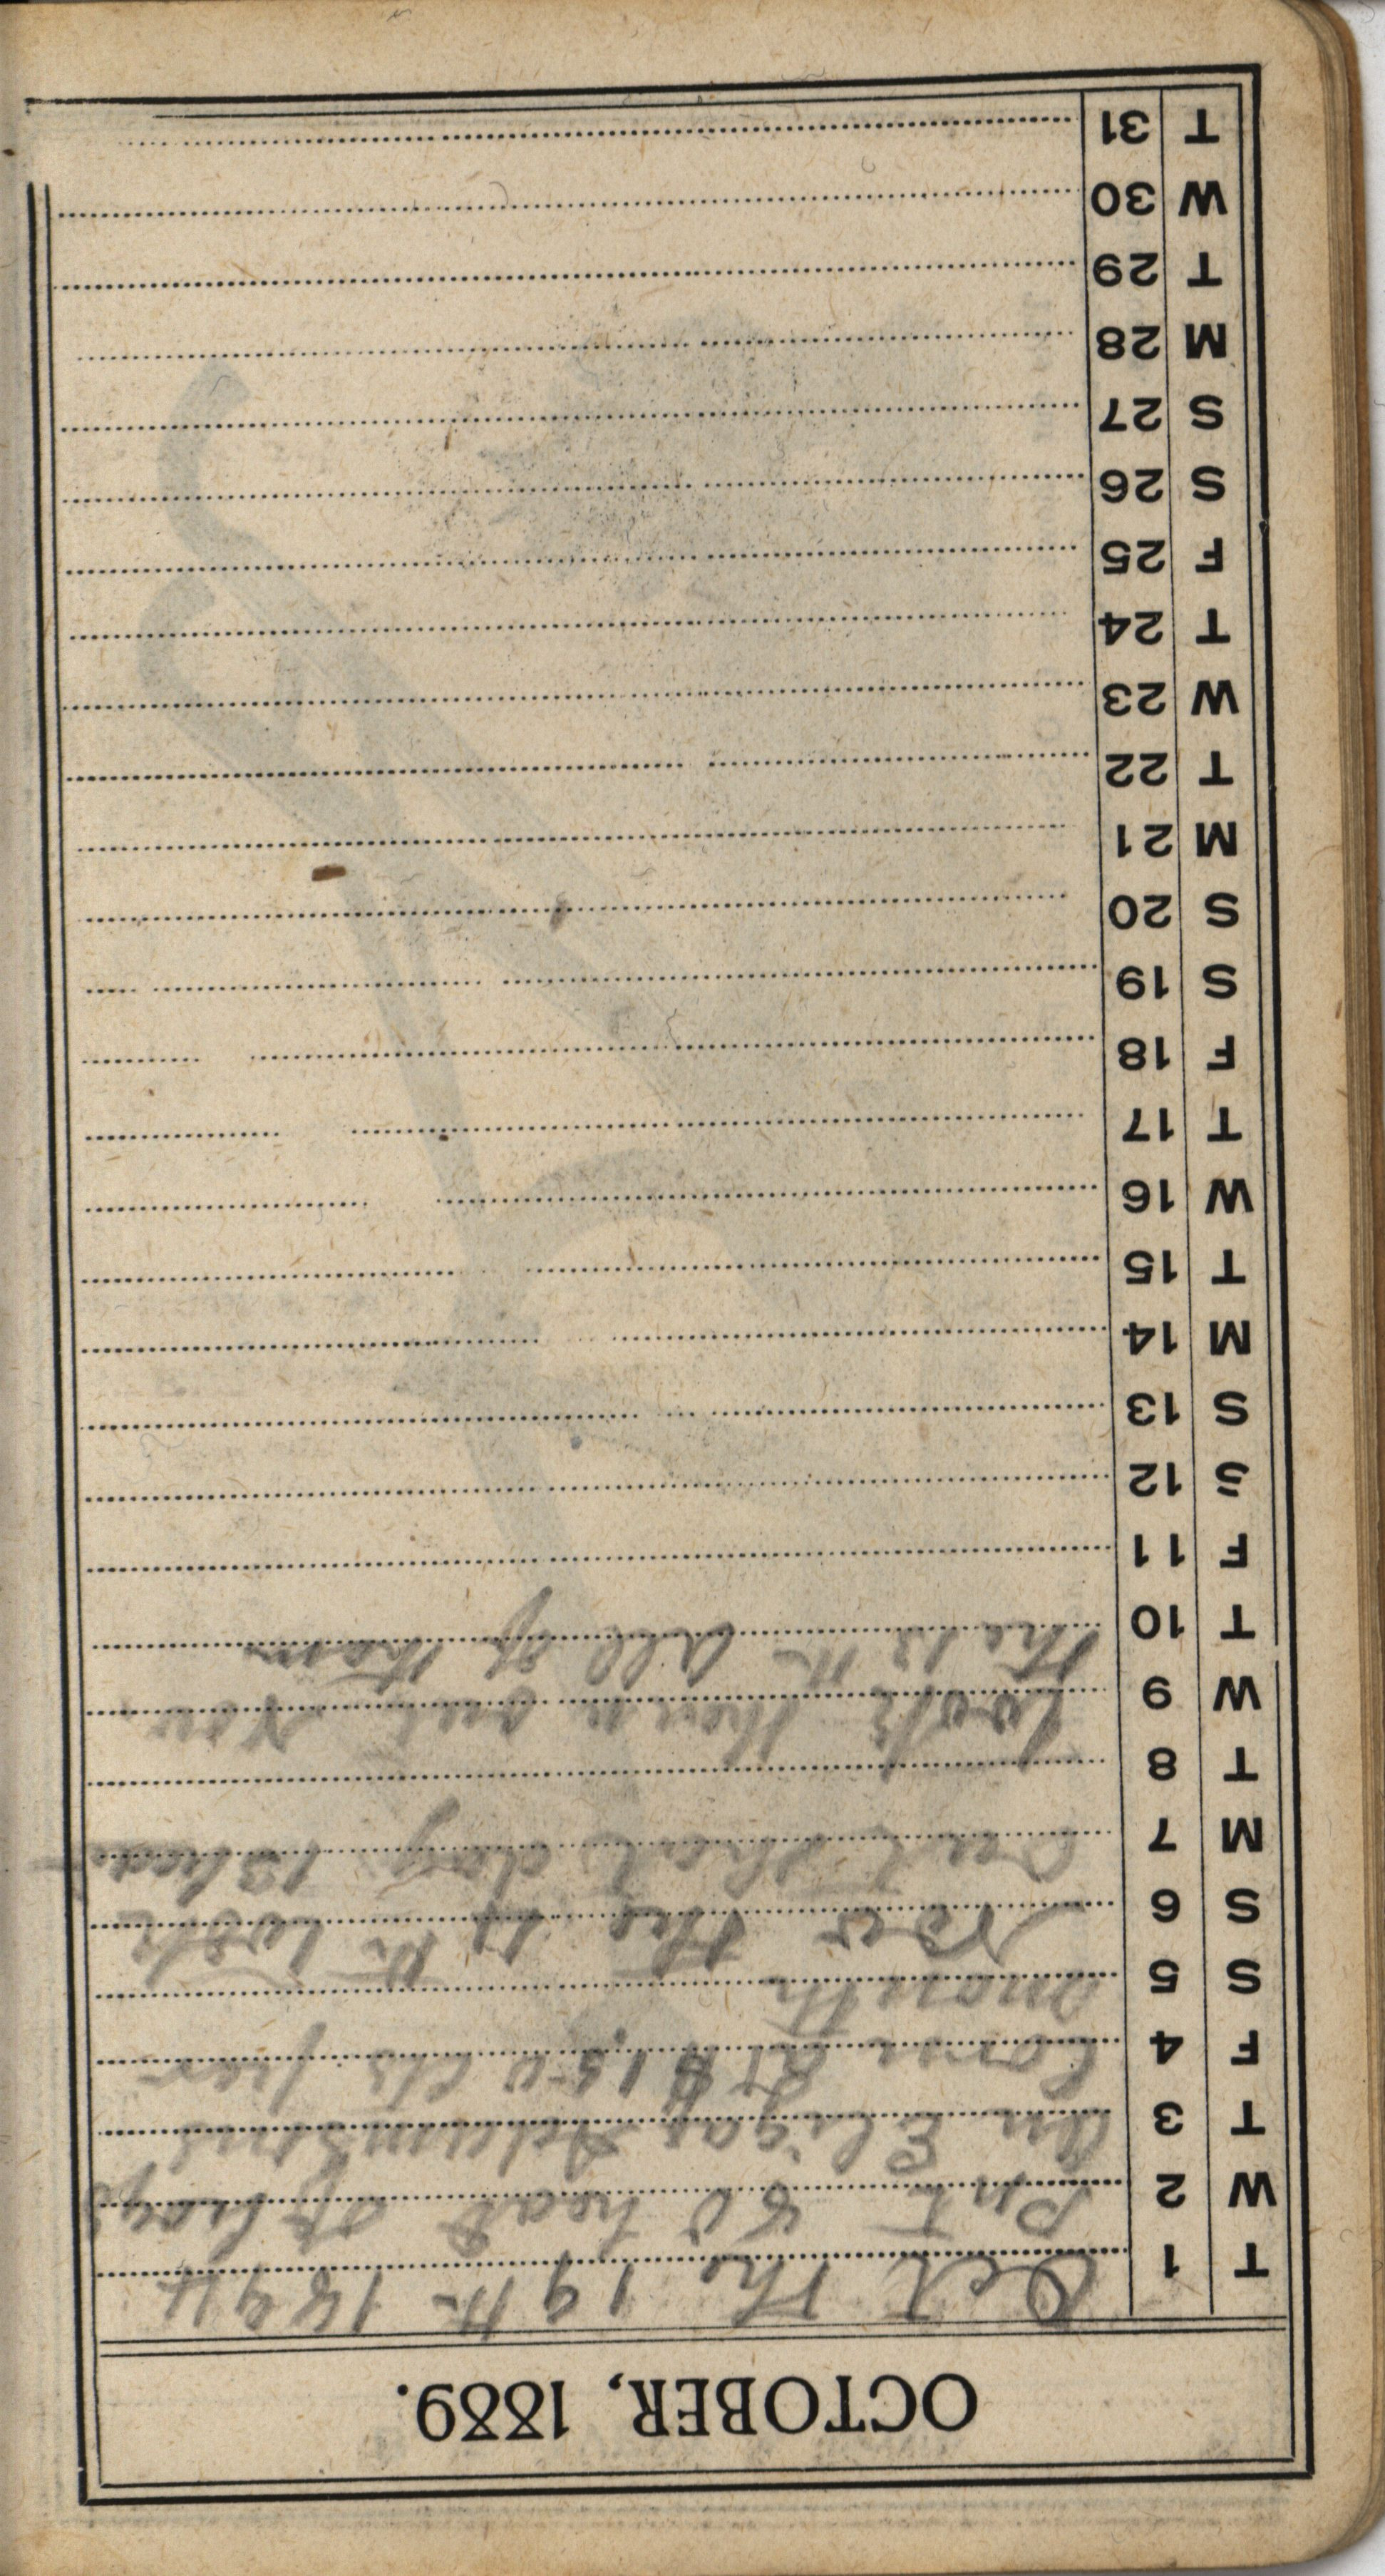 OCTOBER, 1889.
T 1 Oct the 19th 1894
W 2 Put 80 head of hogs
T 3 in Eligas Adamstus
F 4 Corn at $1.50 cts per
S 5 month
S 6 Nov the 1st took
M 7 out that day 13 head
T 8
W 9 took them out Nov
T 10 the 13th all of them
F 11
S 12
S 13
M 14
T 15
W 16
T 17
F 18
S 19
S 20
M 21
T 22
W 23
T 24
F 25
S 26
S 27
M 28
T 29
W 30
T 31